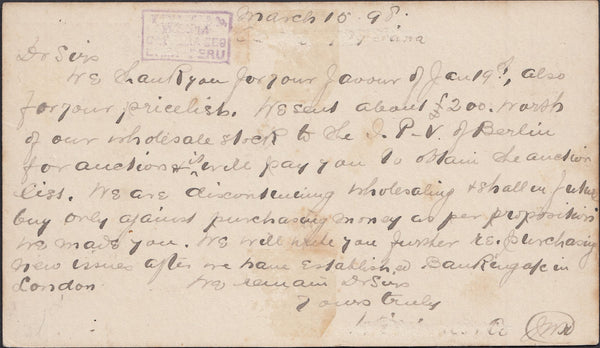 March 15. 98.
PERU
Dr Sirs
We thank you for your favour of Jan 19th, also
for your pricelist. We sent about £200. worth
of our wholesale stock to the I. P-V. of Berlin
for auction & it will pay you to obtain the auction
list. We are discontinuing wholesaling & shall in future
buy only against purchasing money as per proposition
we made you. We will write you further re. purchasing
new issues after we have established Banking a/c in
London We remain Dr Sirs
Yours truly